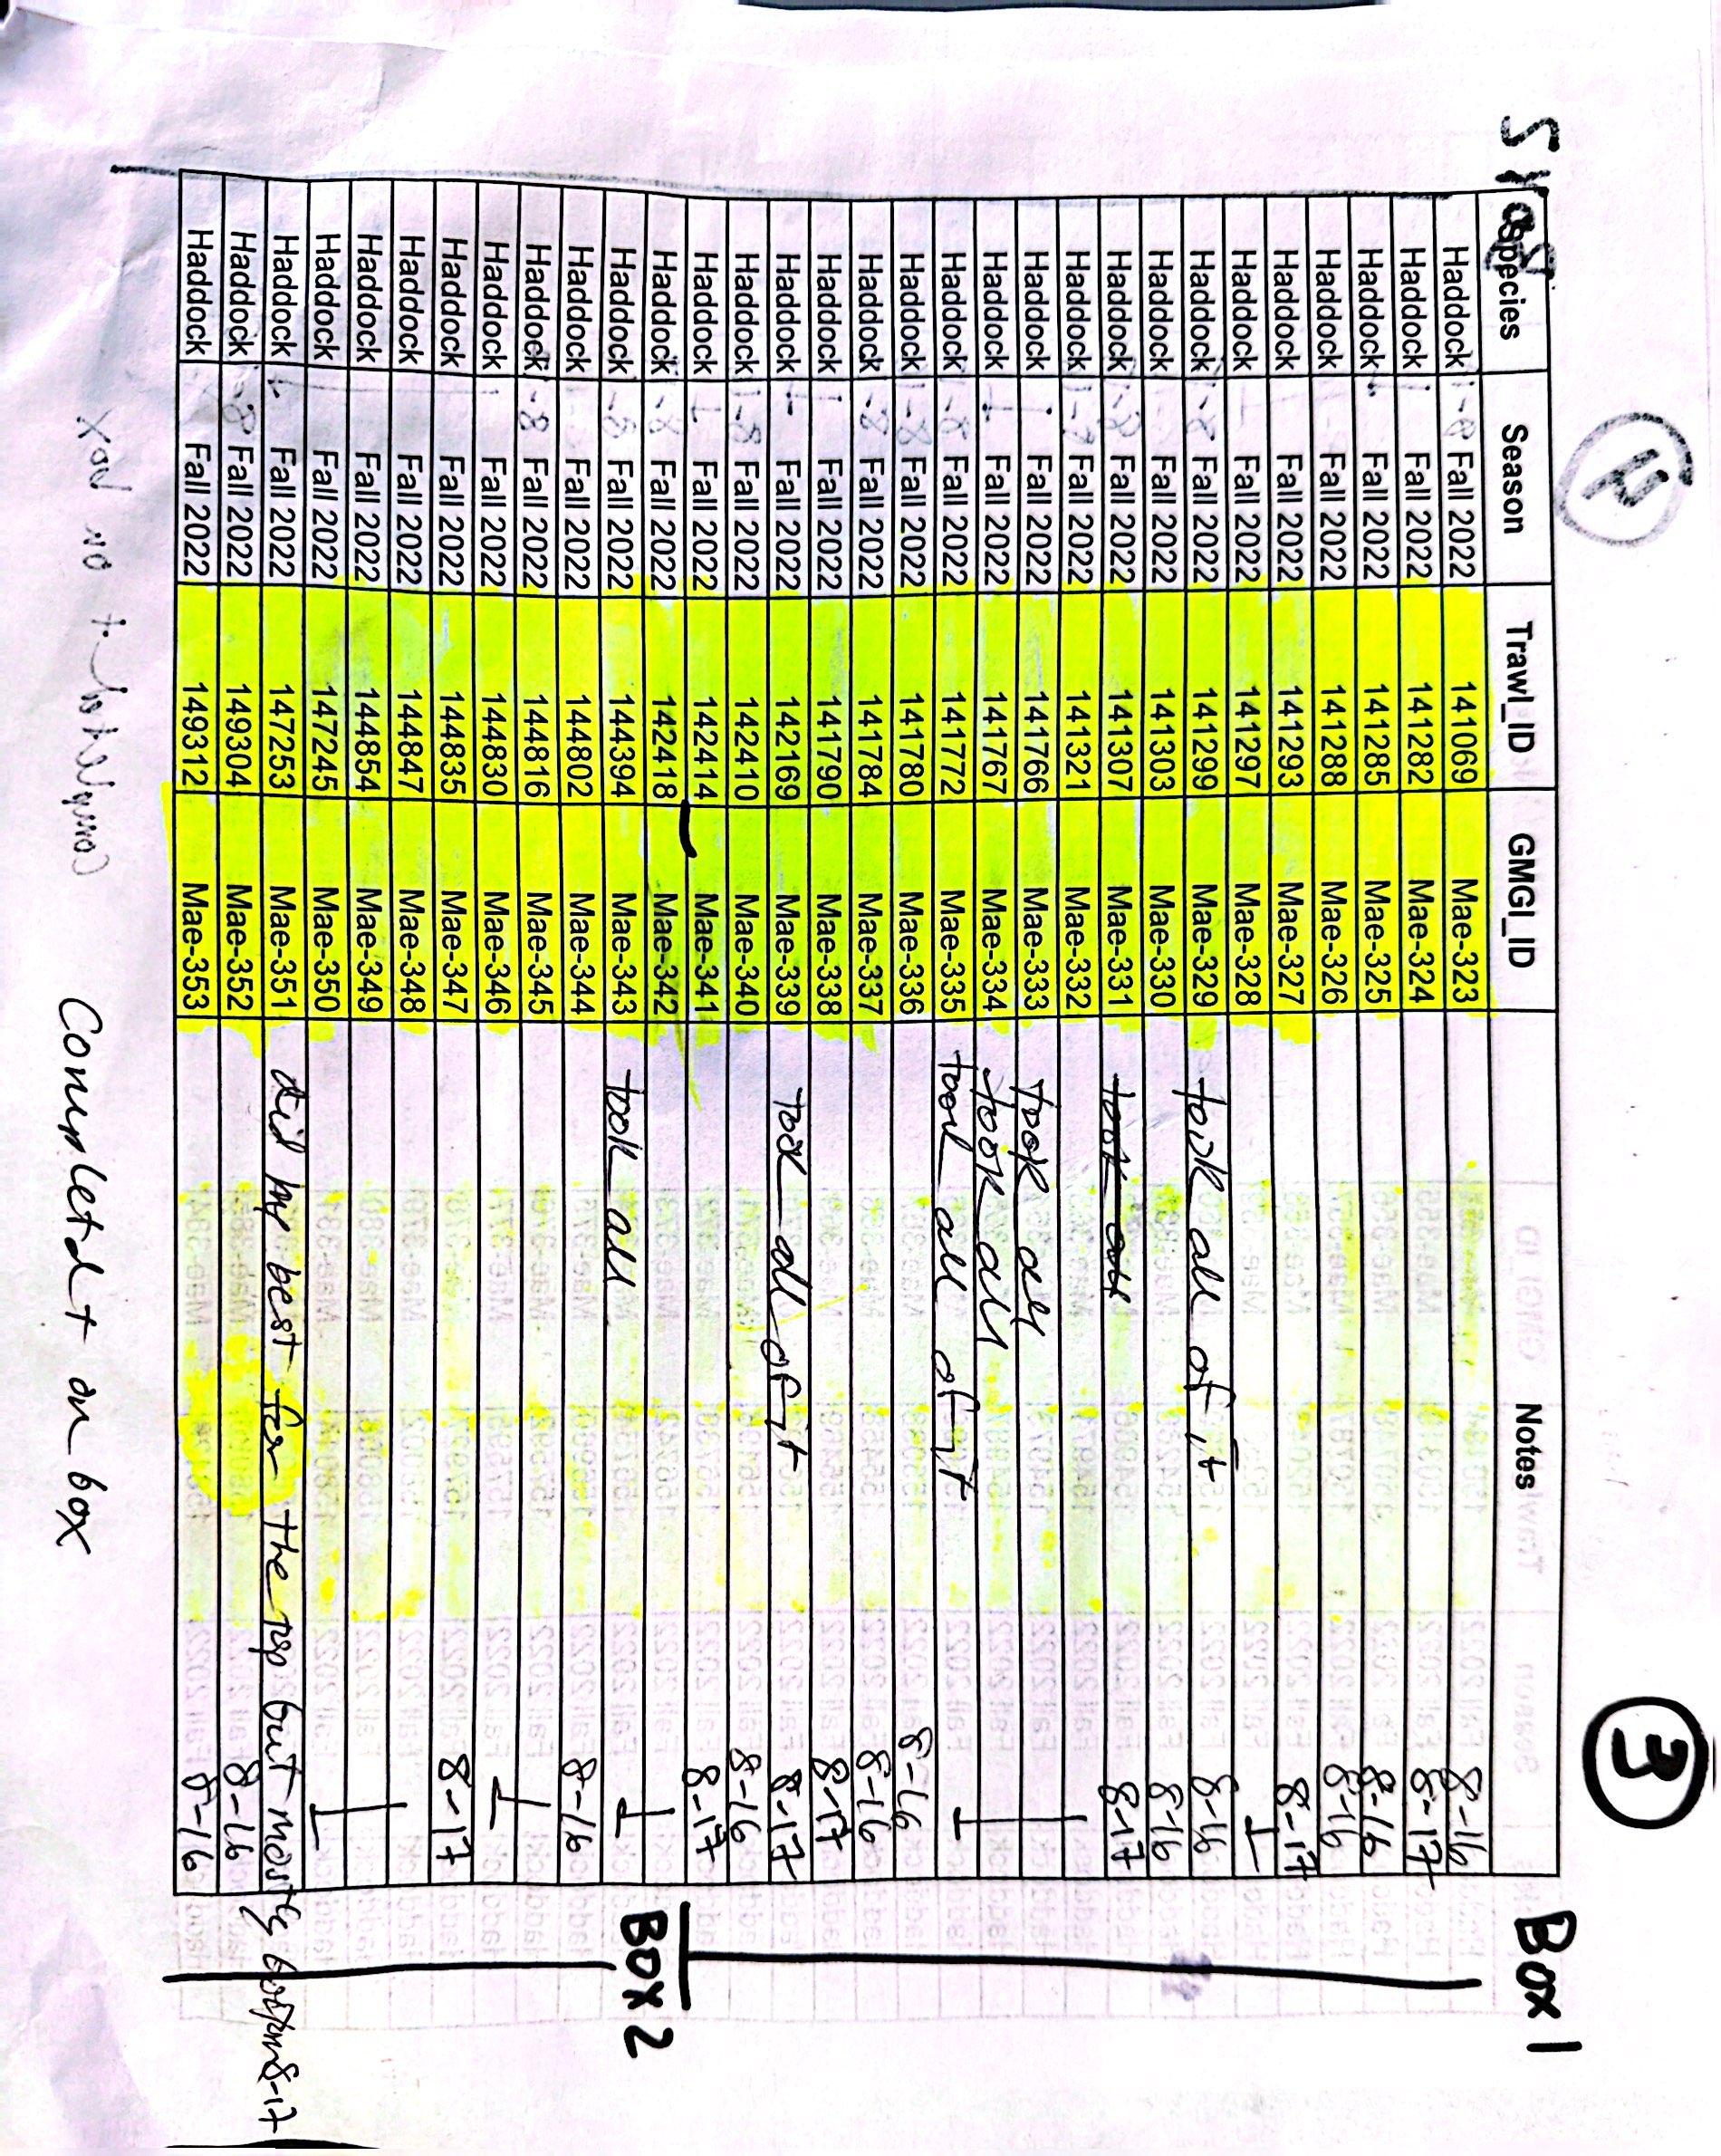 3
Box 1
Species Season Trawl_ID GMGI_ID Notes
Haddock Fall 2022 141069 Mae-323 8-16
Haddock Fall 2022 141282 Mae-324 8-17
Haddock Fall 2022 141285 Mae-325 8-16
Haddock Fall 2022 141288 Mae-326 8-16
Haddock Fall 2022 141293 Mae-327 8-17
Haddock Fall 2022 141297 Mae-328
Haddock Fall 2022 141299 Mae-329 took all of it 8-16
Haddock Fall 2022 141303 Mae-330 8-16
Haddock Fall 2022 141307 Mae-331 took all 8-17
Haddock Fall 2022 141321 Mae-332
Haddock Fall 2022 141766 Mae-333 took all
Haddock Fall 2022 141767 Mae-334 took all
Haddock Fall 2022 141772 Mae-335 took all of it
Haddock Fall 2022 141780 Mae-336 8-16
Haddock Fall 2022 141784 Mae-337 8-16
Haddock Fall 2022 141790 Mae-338 8-17
Haddock Fall 2022 142169 Mae-339 took all of it 8-17
Haddock Fall 2022 142410 Mae-340 8-16
Haddock Fall 2022 142414 Mae-341 8-17
Haddock Fall 2022 142418 Mae-342
BOX 2
Haddock Fall 2022 144394 Mae-343 took all
Haddock Fall 2022 144802 Mae-344 8-16
Haddock Fall 2022 144816 Mae-345
Haddock Fall 2022 144830 Mae-346
Haddock Fall 2022 144835 Mae-347 8-17
Haddock Fall 2022 144847 Mae-348
Haddock Fall 2022 144854 Mae-349
Haddock Fall 2022 147245 Mae-350
Haddock Fall 2022 147253 Mae-351 did my best for the top but mostly bottom 8-17
Haddock Fall 2022 149304 Mae-352 8-16
Haddock Fall 2022 149312 Mae-353 8-16
Completd + on box